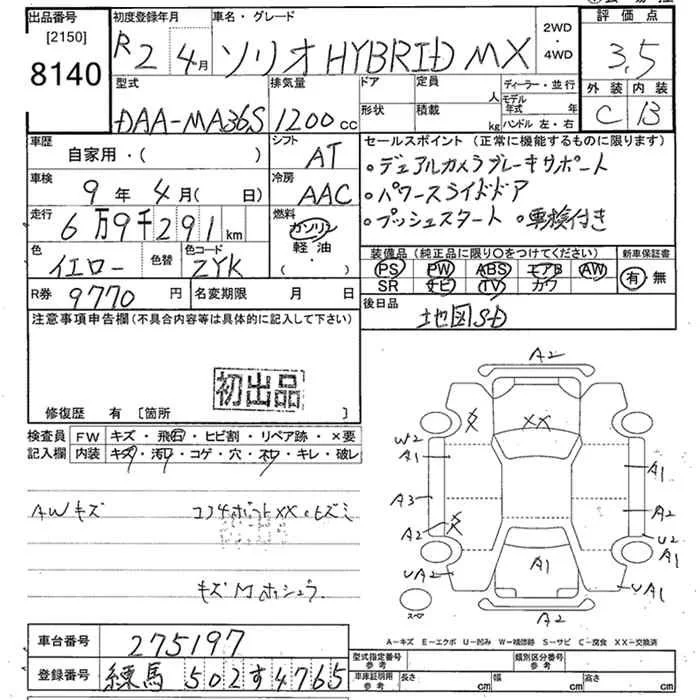 出品番号 初度登録年月 車名・グレード 2WD・4WD 評価点
[2150]
8140 R2 4月 ソリオ HYBRID MX 3.5
型式 排気量 ドア 定員 人 ディーラー・並行 外装 内装
形状 積載 kg モデル年式 年 ハンドル 左・右
DAA-MA36S 1200cc C B
車歴 自家用・( ) シフト AT
セールスポイント(正常に機能するものに限ります)
車検 9年 4月( 日) 冷房 AAC
・デュアルカメラブレーキサポート
・パワースライドドア
走行 6万9千291km 燃料 ガソリン 軽油 ( ・ )
・プッシュスタート ・車検付き
色 イエロー 色替 色コード ZYK
装備品(純正品に限り○をつけてください) 新車保証書
PS PW ABS エアB AW 有・無
SR ナビ TV カワ
R券 9770円 名変期限 月 日
後日品 地図SD
注意事項申告欄(不具合内容等は具体的に記入して下さい)
初出品
修復歴 有 [箇所 ]
検査員 FW キズ・飛石・ヒビ割・リペア跡・×要
記入欄 内装 キズ・汚れ・コゲ・穴・ネジ・キレ・破レ
AWキズ
A2
XX
W2
A1
A1
A3
A2
A2
U2
UA2
A1
UA1
スペア
A2
A-キズ E-エクボ U-凹み W-補修跡 S-サビ C-腐食 XX-交換済
車台番号 275197
登録番号 練馬 502 す 4765
型式指定番号 参考 類別区分番号 参考
車庫証明用 参考 長さ cm 幅 cm 高さ cm